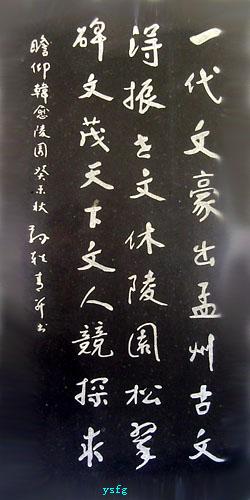 一代文豪出孟州古文
得振世文休陵園松翠
碑文茂天下文人競探求
瞻仰韓愈陵園癸未秋 青 书
ysfg